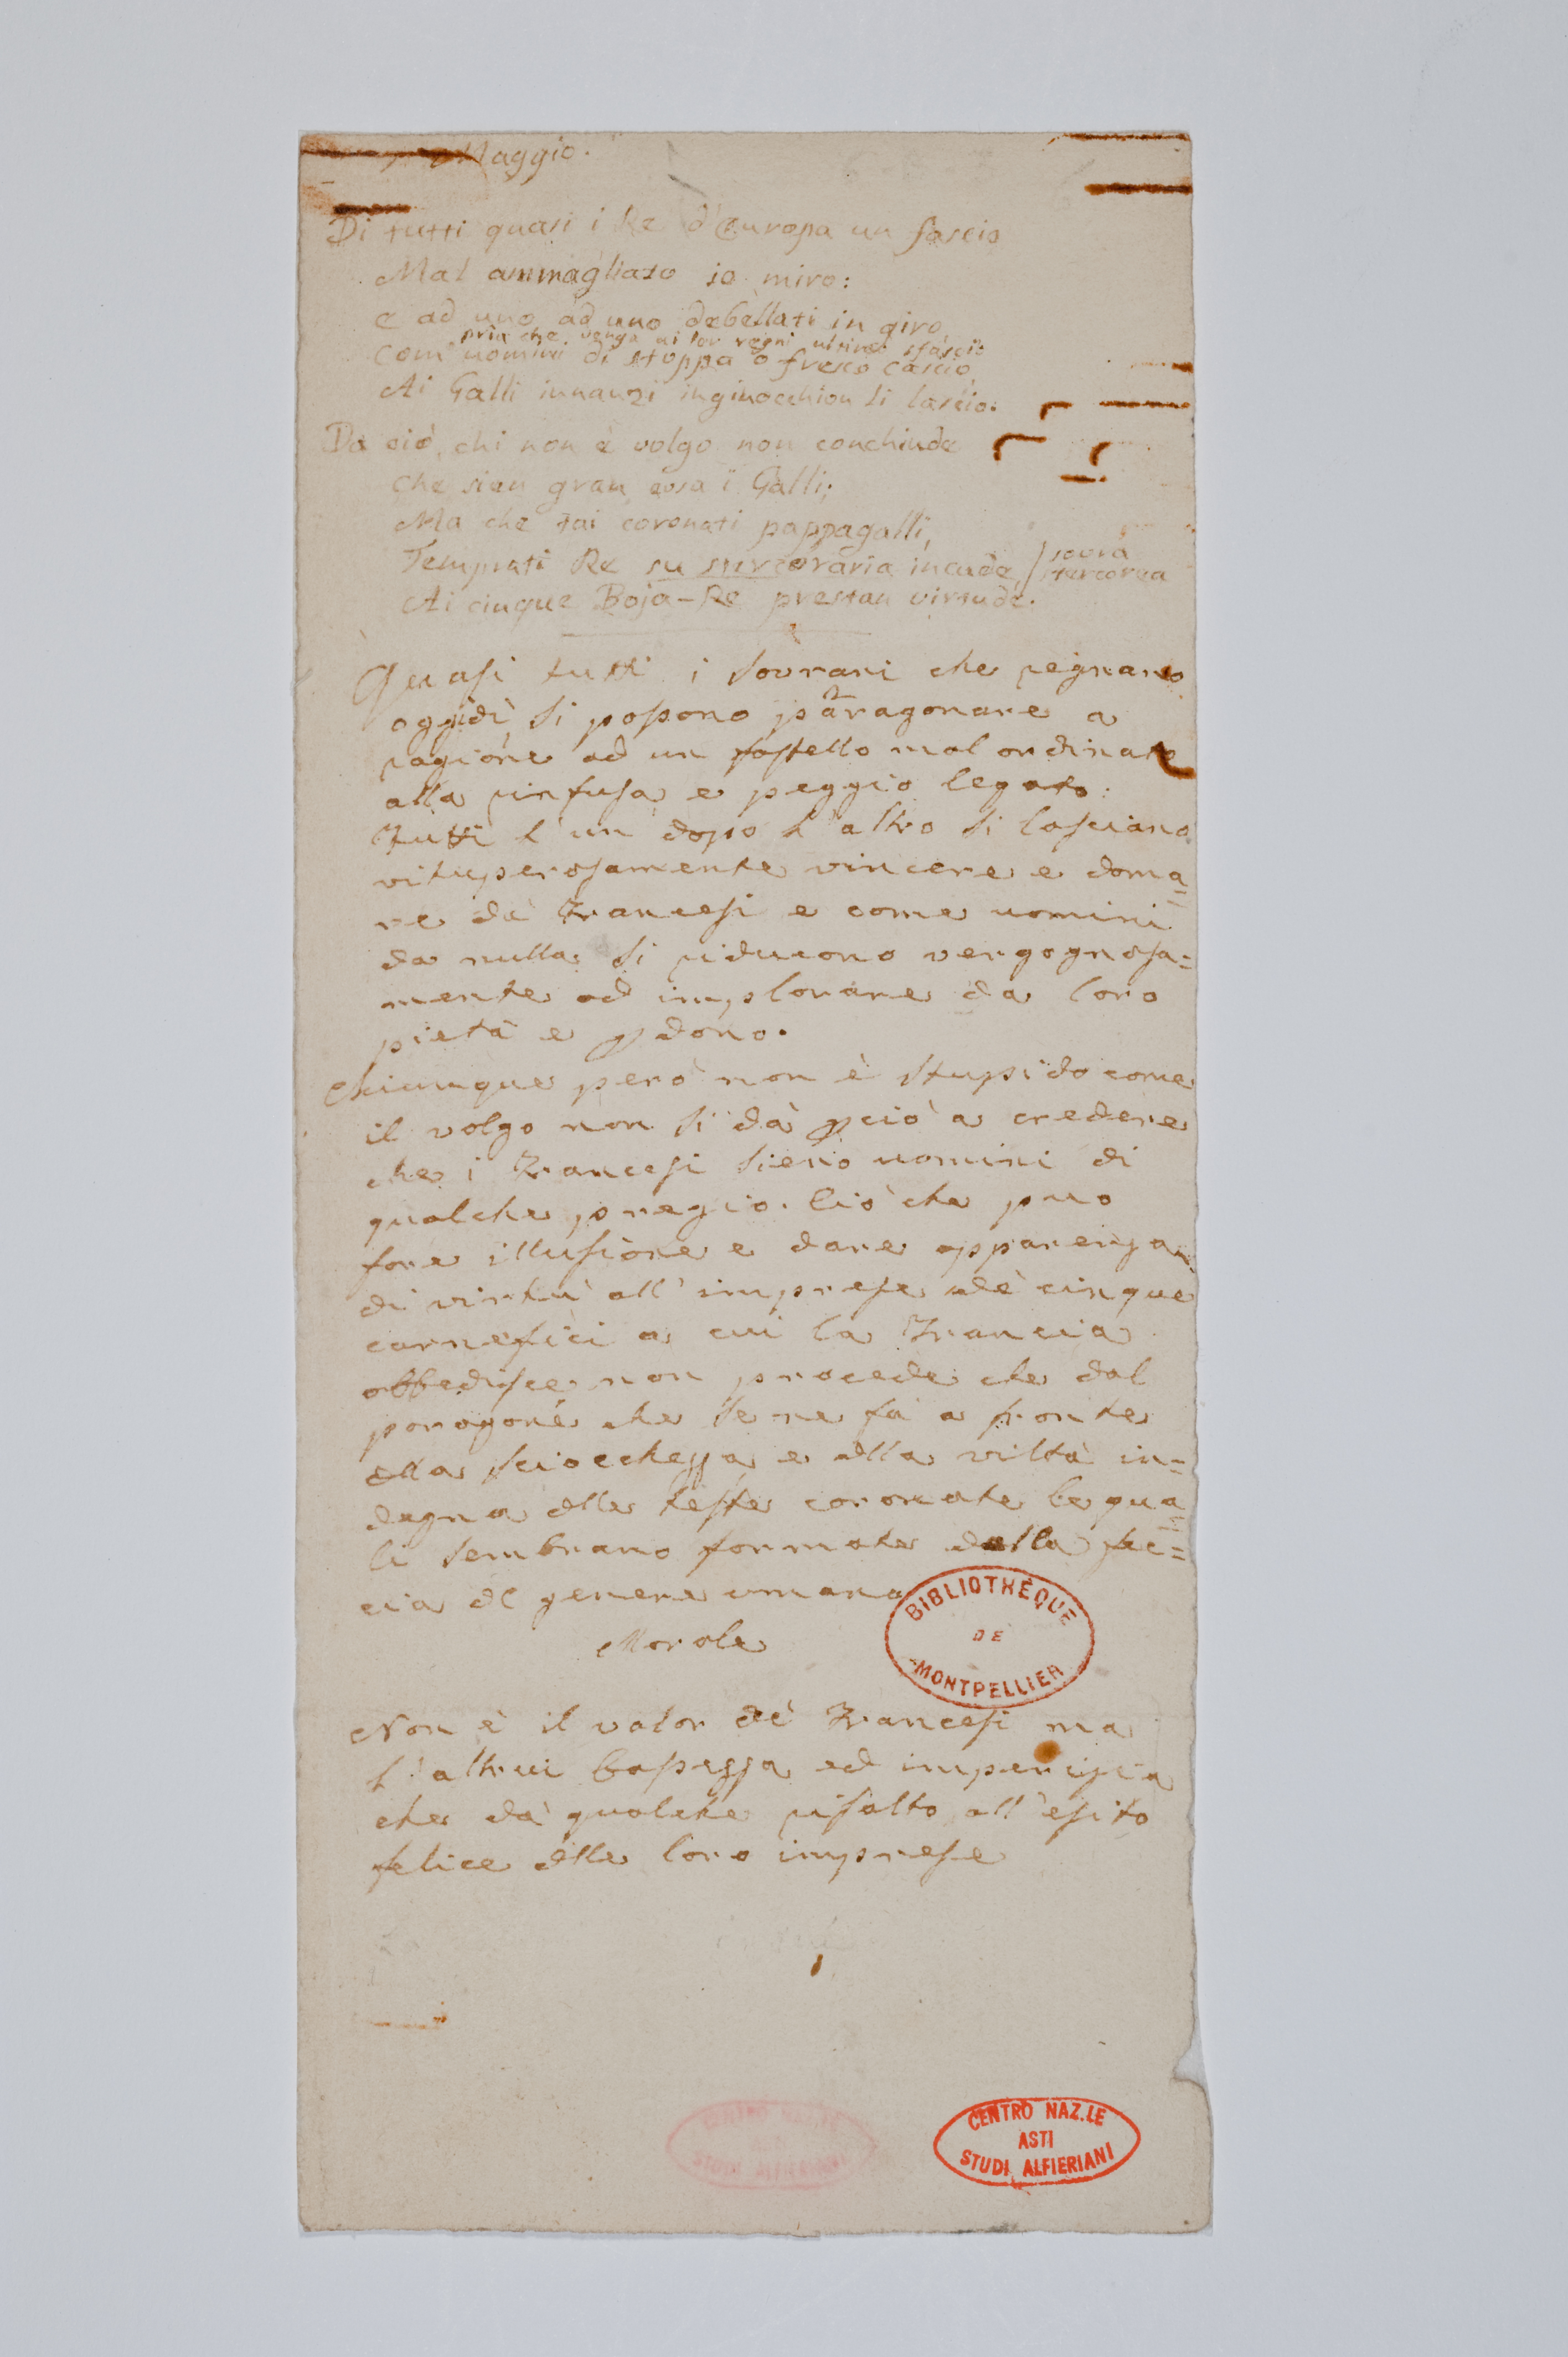 Maggio.
Di tutti quasi i Re d'Europa un fascio
Mal ammagliato io miro:
e ad uno ad uno debellati in giro,
pria che venga ai lor regni ultimo sfascio
Com' uomini di stoppa o fresco cascio,
Ai Galli innanzi inginocchion li lascio.
Da ciò, chi non è volgo non conchiude
Che sien gran cosa i Galli;
Ma che tai coronati pappagalli,
Temprati Re su stercoraria incude, / sovra
stercorea
Ai cinque Boja-Re prestan virtude.
Quasi tutti i Sovrani che regnano
oggidì si possono paragonare a
ragione ad un fastello mal ordinato
alla rinfusa e peggio legato:
Tutti l'un dopo l'altro si lasciano
vituperosamente vincere e doma=
re da' Francesi e come uomini
da nulla si riducono vergognosa=
mente ad implorare da loro
pietà e pdono.
Chiunque però non è stupido come
il volgo non si dà pciò a credere
che i Francesi sieno uomini di
qualche pregio. Ciò che può
fare illusione e dare apparenza
di virtù all'imprese de' cinque
carnefici a cui la Francia
obbedisce non procede che dal
paragone che se ne fa a fronte
dlla sciocchezza e dlla viltà in=
degna dlle teste coronate le qua=
li sembrano formate dalla fec=
cia dl genere umano
Morale
Non è il valor de' Francesi ma
l'altrui bassezza ed imperizia
che dà qualche risalto all'esito
felice dlle loro imprese
BIBLIOTHÈQUE
DE
MONTPELLIER
CENTRO NAZ.LE
ASTI
STUDI ALFIERIANI
CENTRO NAZ.LE
STUDI ALFIERIANI